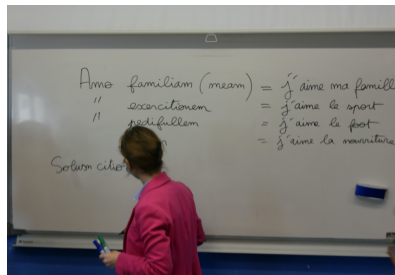 Amo familiam (meam) = j'aime ma famill
" exercitionem = j'aime le sport
" pedifollem = j'aime le foot
= j'aime la nourriture
Solum